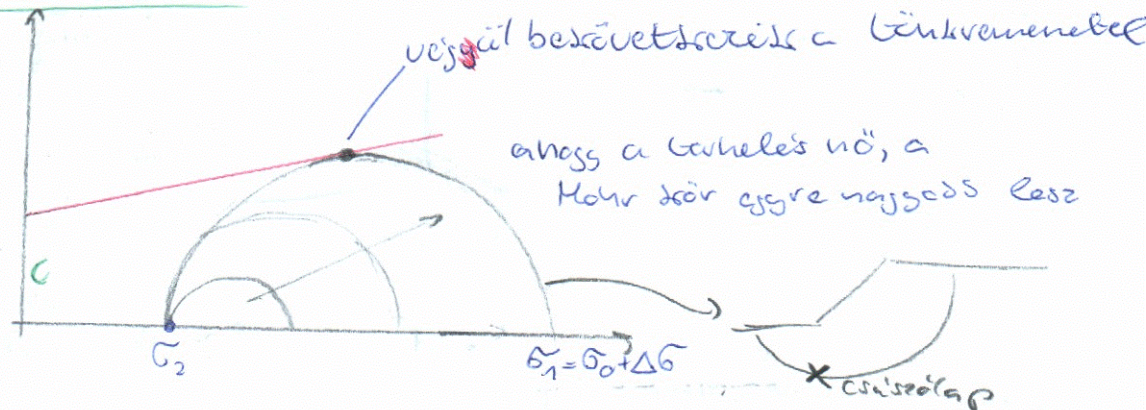 végül bekövetkezik a tönkremenetel
ahogy a terhelés nő, a
Mohr kör egyre nagyobb lesz
C
σ₂
σ₁=σ₀+Δσ
csúszólap